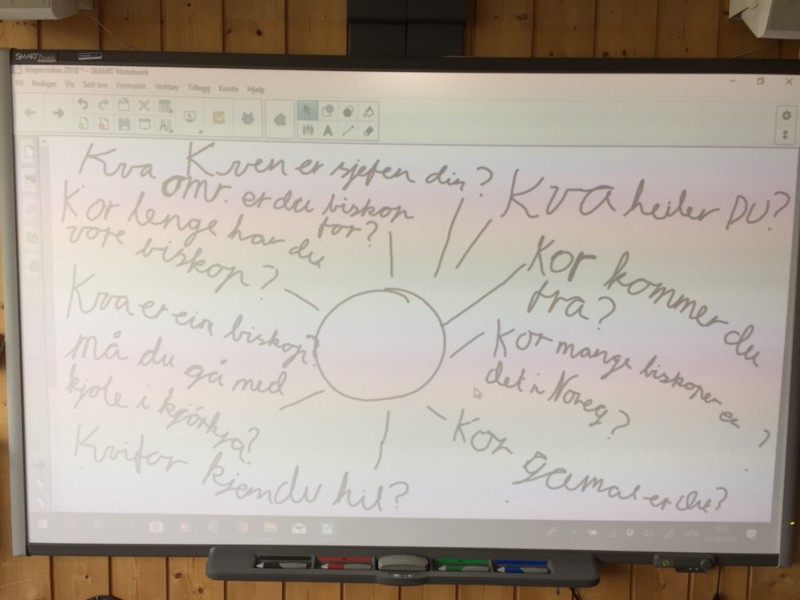 SMART
- SMART Notebook
Fil Rediger Vis Sett inn Formater Verktøy Tillegg Konto Hjelp
Kven er sjefen din?
Kva omr. er du biskop
for?
Kva heiter DU?
Kor lenge har du
vore biskop?
Kor kommer du
fra?
Kva er ein biskop?
Kor mange biskoper er
det i Noreg?
Må du gå med
kjole i kjørkja?
Kor gamal er du?
Kvifor kjem du hit?